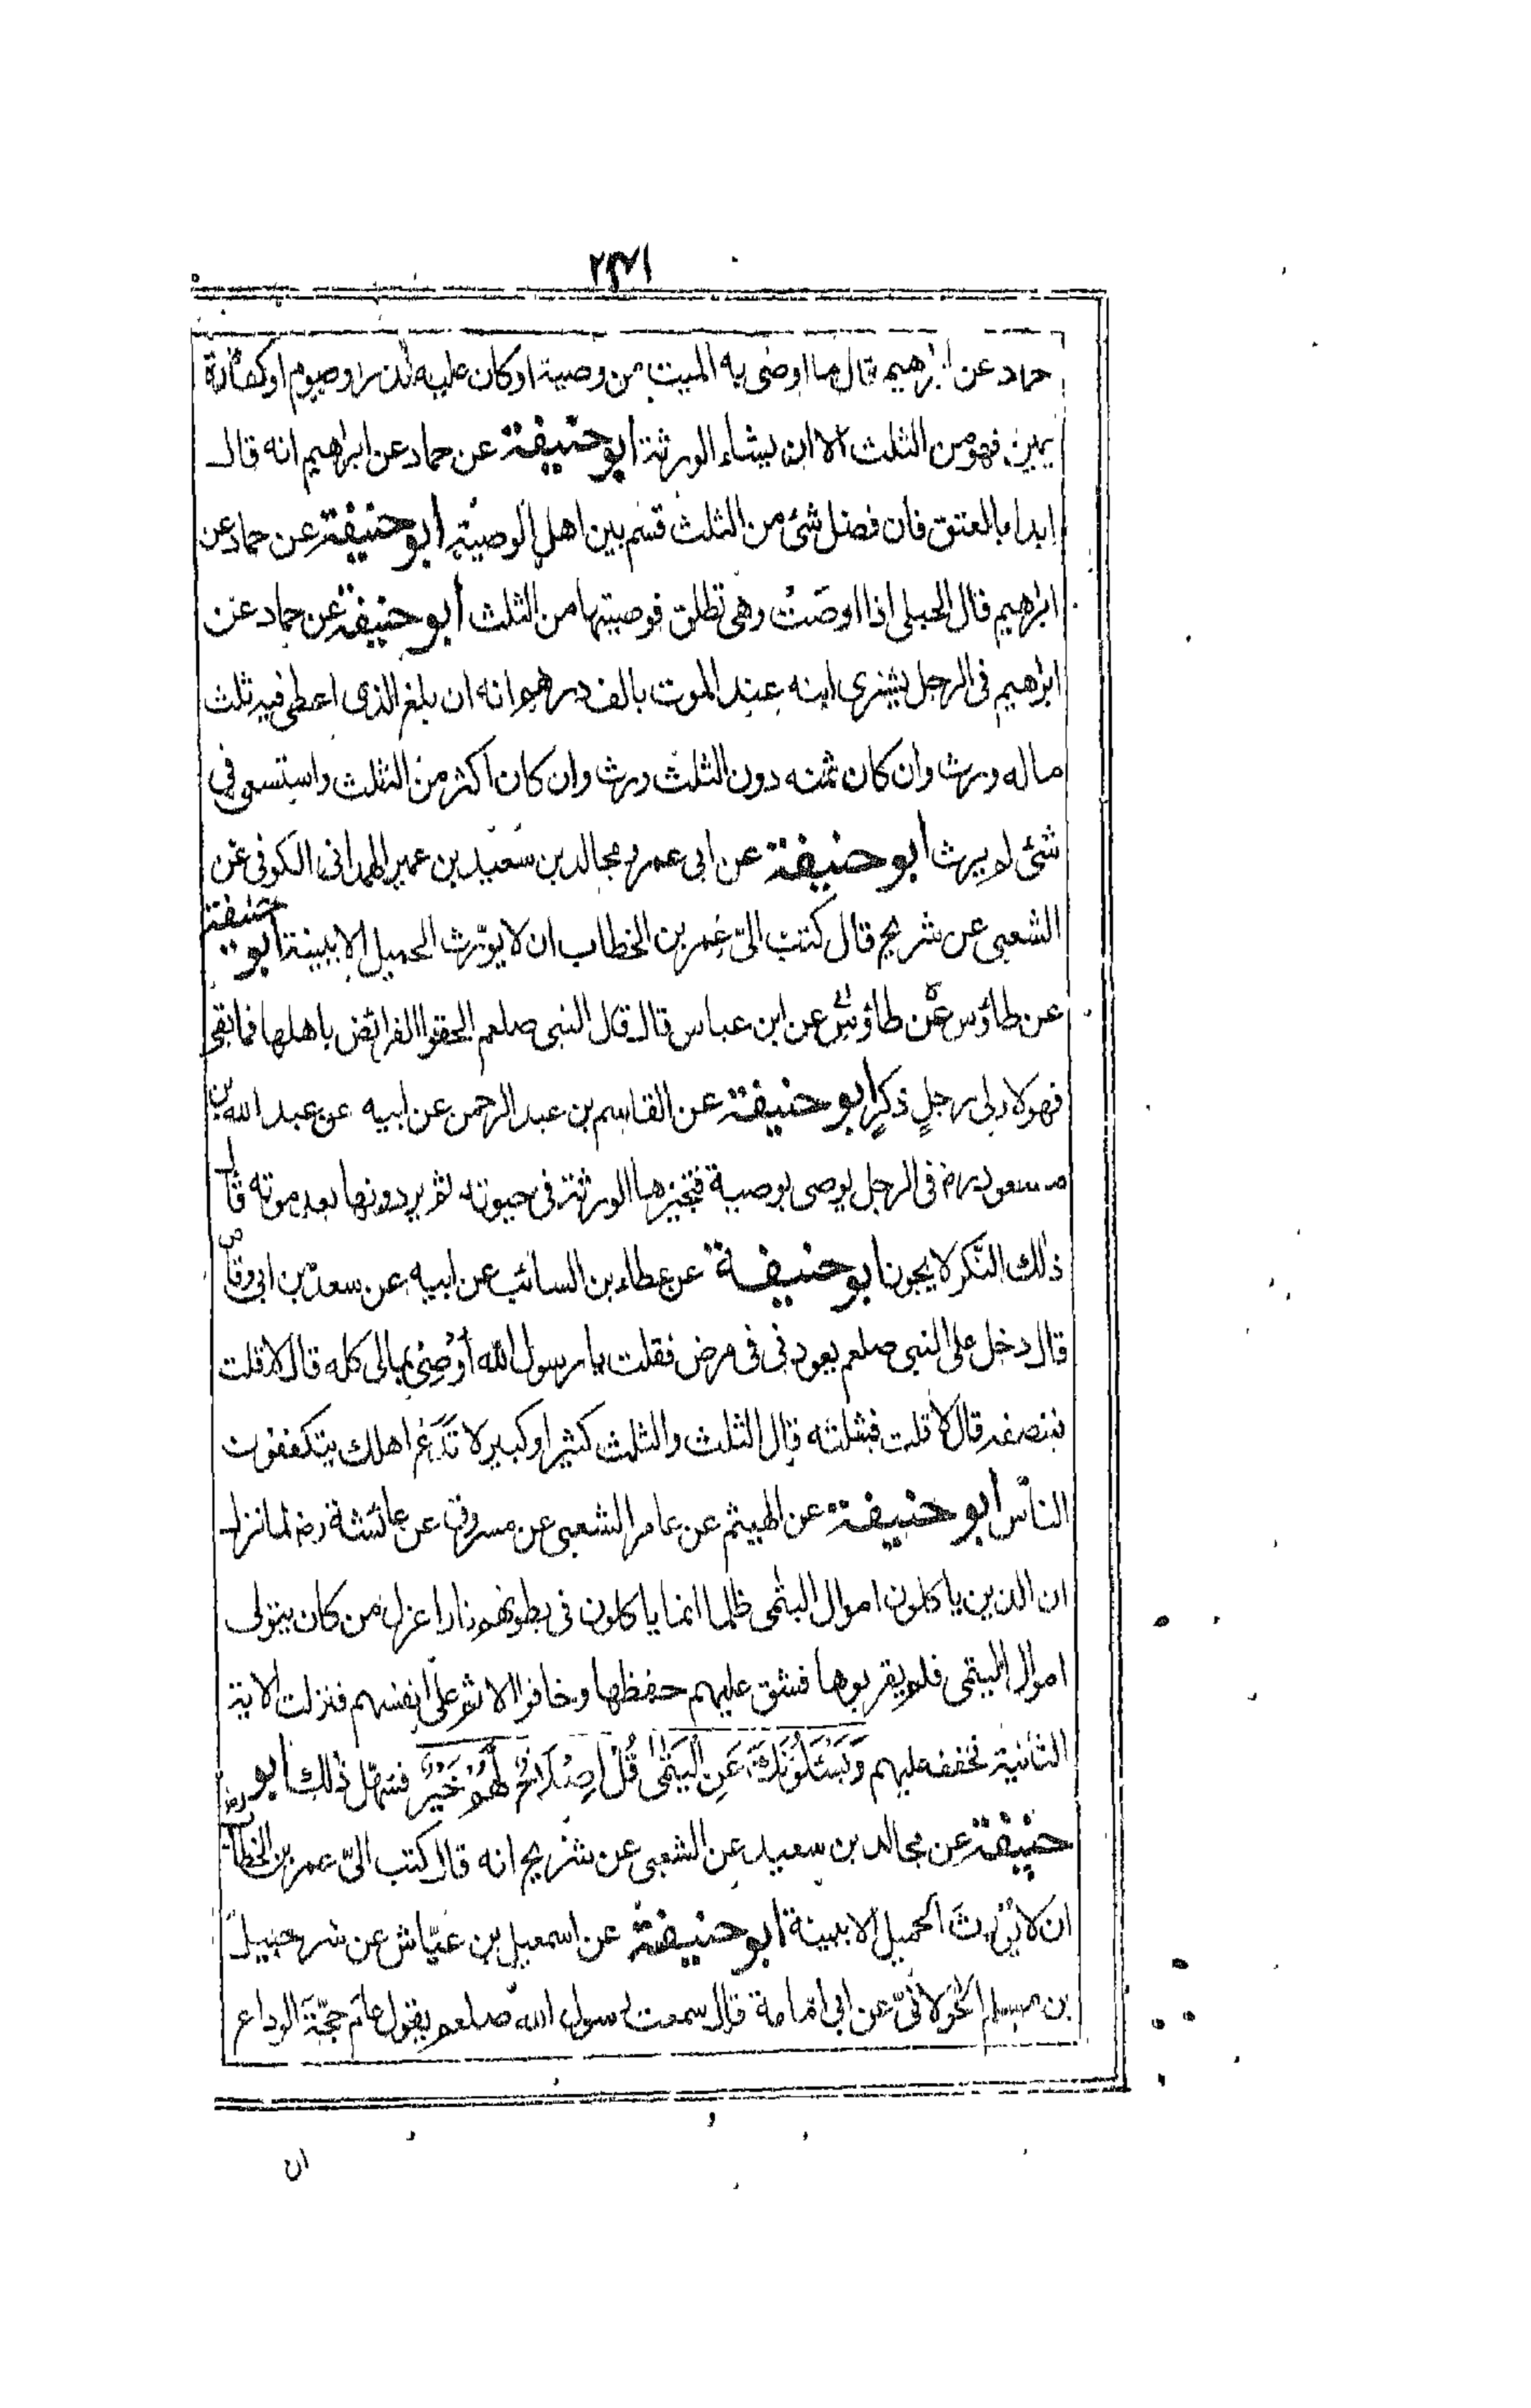 حماد عن ابرهيم قال ما اوضى به الميت من وصية اوكان عليه نذر اوصوم اوكفارة
يمين فهومن الثلث الا ان يشاء الورثة ابو حنيفة عن حماد عن ابراهيم انه قال
ابداء بالعتق فان فضل شئ من الثلث قسم بين اهل الوصية ابو حنيفة عن حماد عن
ابراهيم قال الحبلى اذا اوصت وهى تطلق فوصيتها من الثلث أبو حنيفة عن حماد عن
ابراهيم فى الرجل يشترى ابنه عند الموت بالف درهم انه ان بلغ الذى اعطى فيه ثلث
ماله ورث وان كان ثمنه دون الثلث ورث وان كان اكثر من الثلث واستسعى فى
شئ لم يرث ابو حنيفة عن ابى عمرو مجالد بن سعيد بن عمير الهمدانى الكوفى عن
الشعبى عن شريح قال كتب الىّ عمر بن الخطاب ان لا يورّث الحميل الا ببينة ابو حنيفة
عن طاؤس عن طاؤس عن ابن عباس قال قال النبى صلعم الحقوا الفرائض باهلها فما بقى
فهو لاولى رجلٍ ذكرٍ ابو حنيفة عن القاسم بن عبد الرحمن عن ابيه عن عبد الله بن
مسعود رض فى الرجل يوصى بوصية فتجيزها الورثة فى حيوته ثم يردونها بعد موته قال
ذلك التّكر لا يجوز ابو حنيفة عن عطاء بن السائب عن ابيه عن سعد بن ابى وقاص
قال دخل على النبى صلعم يعودنى فى مرض فقلت يا رسول الله أوصى بمالى كله قال لا قلت
فبنصفه قال لا قلت فبثلثه قال الثلث والثلث كثير اوكبير لا تدع اهلك يتكففون
الناس أبو حنيفة عن الهيثم عن عامر الشعبى عن مسروق عن عائشة رض لما نزل
ان الذين ياكلون اموال اليتمى ظلما انما ياكلون فى بطونهم نارا عزل من كان يتولى
اموال اليتمى فلم يقربوها فشق عليهم حفظها وخافوا الاثم على انفسهم فنزلت الاية
الثانية فخفف عليهم وَيَسْئَلُوْنَكَ عَنِ الْيَتٰمٰى قُلْ اِصْلَاحٌ لَّهُمْ خَيْرٌ فسهّل ذلك ابو
حنيفة عن مجالد بن سعيد عن الشعبى عن شريح انه قال كتب الىّ عمر بن الخطاب رض
ان لا يُورثَ الحميل الا ببينة ابو حنيفة عن اسمعيل بن عيّاش عن شرحبيل
بن مسلم الخولانىّ عن ابى امامة قال سمعت رسول الله صلعم يقول عام حجّة الوداع
ان